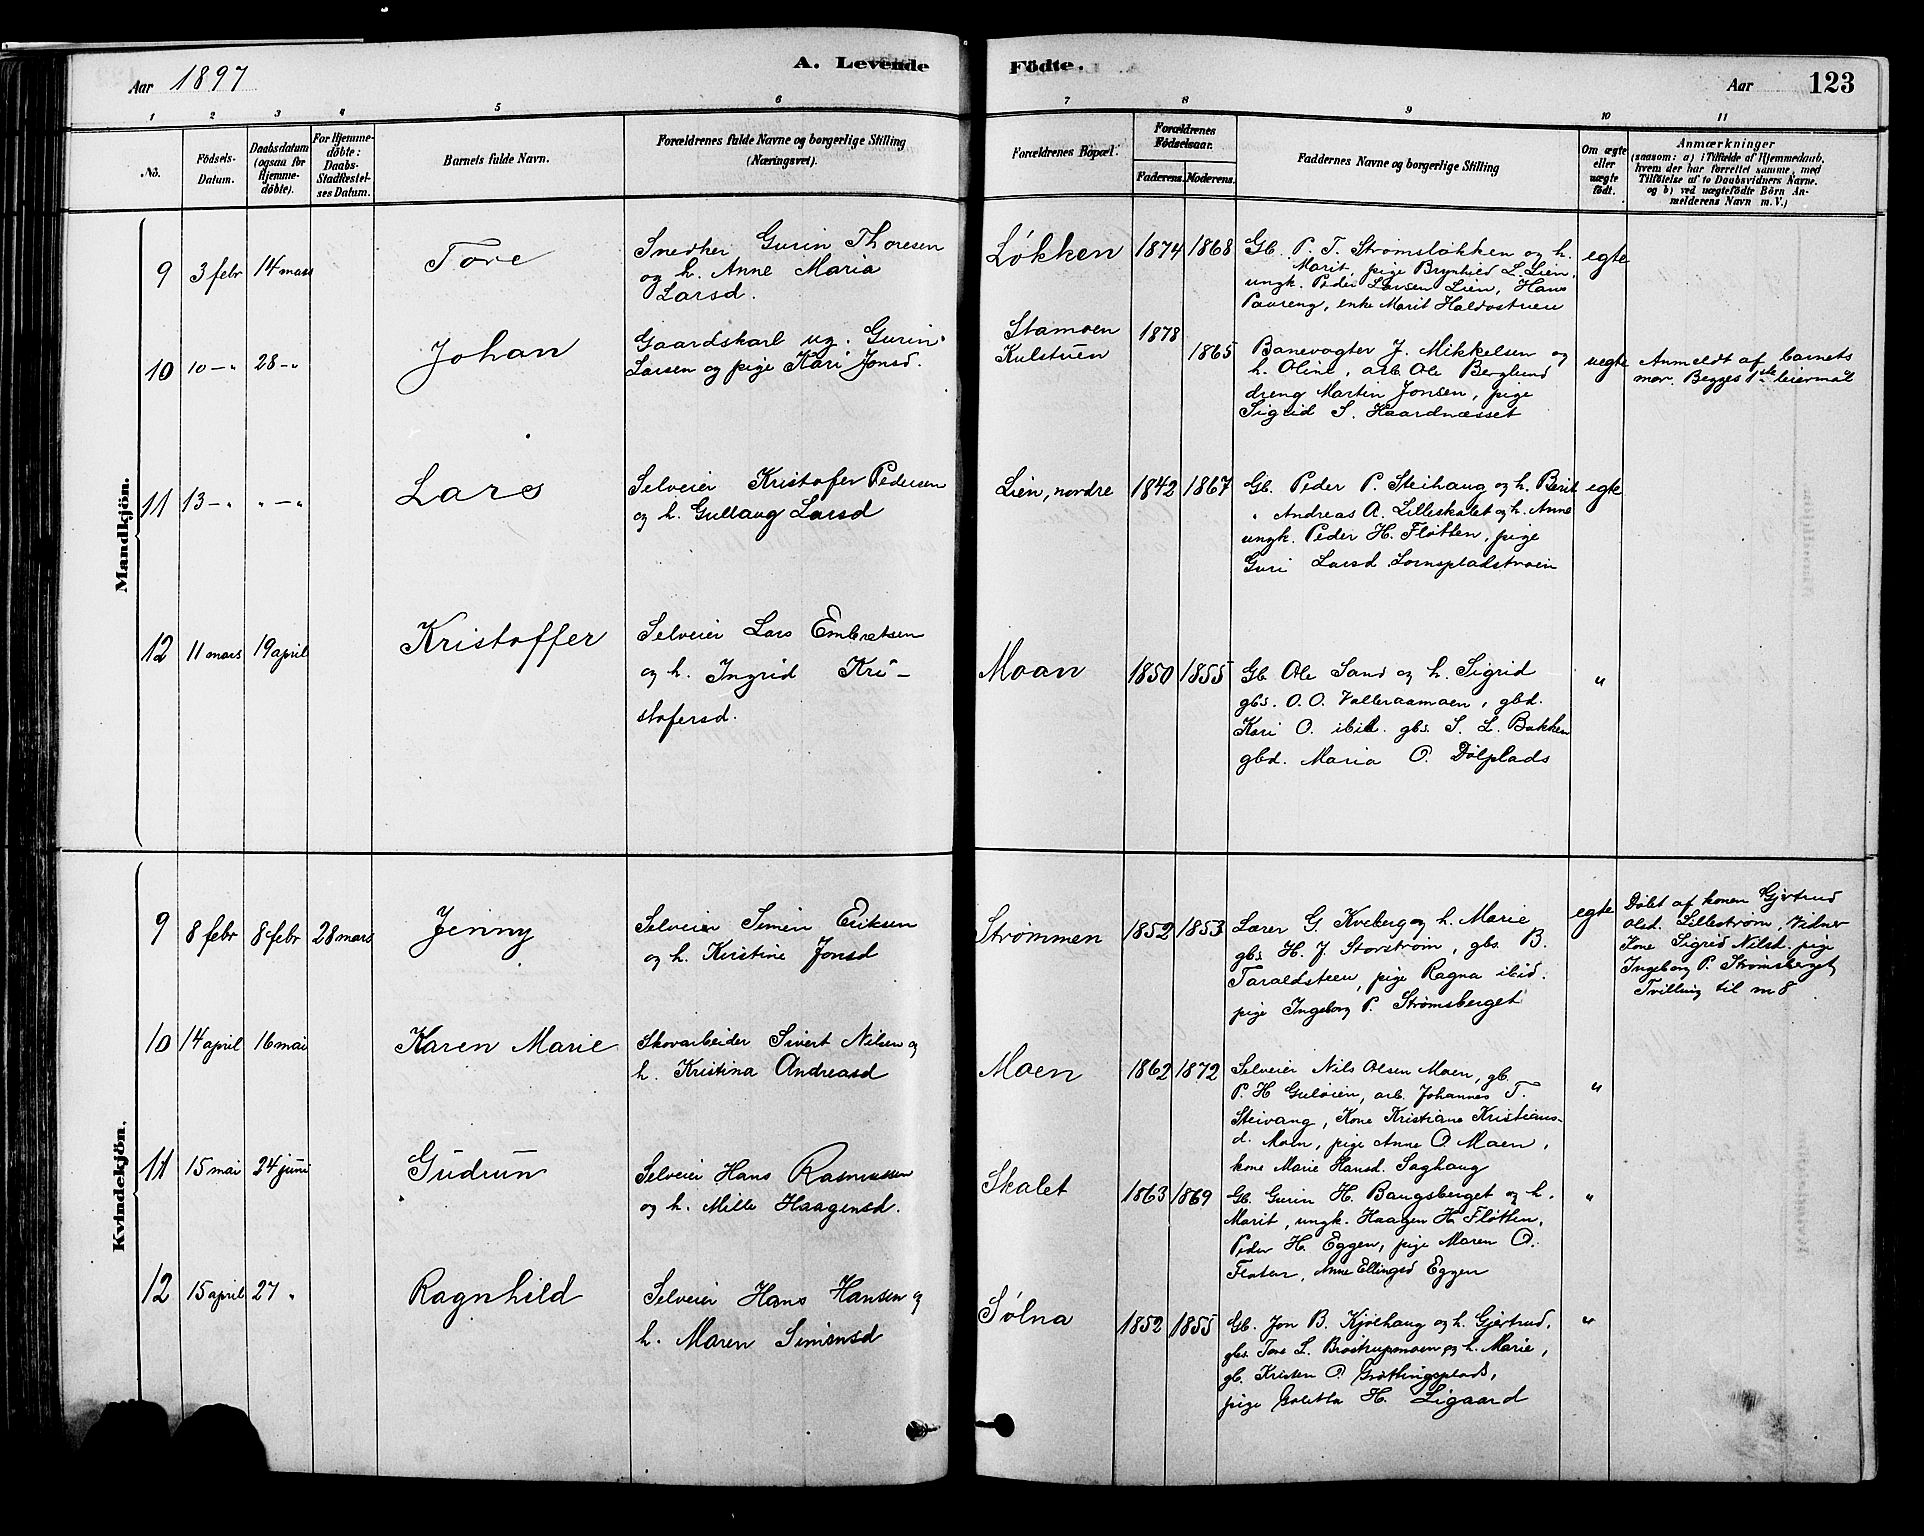 Aar 1897
A. Levende
Födte.
Aar 123
1 2 3 4 5 6 7 8 9 10 11
No.
Födsels-Datum.
Daabsdatum (ogsaa for Hjemmedöbte).
For Hjemmedöbte: Daabs-Stadfæstelses Datum.
Barnets fulde Navn.
Forældrenes fulde Navne og borgerlige Stilling (Næringsvei).
Forældrenes Bopæl.
Forældrenes Födselsaar.
Faderens. Moderens.
Faddernes Navne og borgerlige Stilling
Om ægte eller uægte födt.
Anmærkninger
(saasom: a) i Tilfælde af Hjemmedaab, hvem der har forrettet samme, med Tilföielse af to Daabsvidners Navne, og b) ved uægtefödte Börn Anmelderens Navn m. V.)
Mandkjön.
9 3 febr 14 mars Tore
Snedker Gurin Thoresen
og h. Anne Maria
Larsd.
Løkken 1874 1868
Gb. P. T. Strømsløkken og h.
Marit, pige Brynhild L. Lien,
ungk. Peder Larsen Lien, Hans
enke Marit
egte
10 10 – „ 28 – „ Johan
Gaardskarl ug. Gurin
Larsen og pige Kari Jonsd.
Stamoen 1878
Kulstuen 1865
Banevogter J. Mikkelsen og
h. Oline, arb. Ole Berglund
dreng Martin Jonsen, pige
Sigrid S. Haardnæsset
uegte
Anmeldt af barnets
mor. Begges 1ste leiermål
11 13 – „ „ – „ Lars
Selveier Kristofer Pedersen
og h. Gullaug Larsd
Lien, nordre 1842 1867
Gb. Peder P. Steihaug og h. Berit
„ Andreas A. Lilleskalet og h. Anne
ungk. Peder H. Fløtten, pige
Guri Larsd.
egte
12 11 mars 19 april Kristoffer
Selveier Lars Embretsen
og h. Ingrid Kri-
stofersd.
Moan 1850 1855
Gb. Ole Sand og h. Sigrid
gbs. O. O. Valleraamoen, gbd.
Kari O. ibid. gbs. S. L. Bakken
gbd. Maria O. Dølplads
„
Kvindekjön.
9 8 febr 8 febr 28 mars Jenny
Selveier Simen Eriksen
og h. Kirstine Jonsd
Strømmen 1852 1853
Lærer G. Kveberg og h. Marie
gbs. H. J. Storstrøm, gbs. B.
Taraldsteen, pige Ragna ibid.
pige Ingeborg P. Strømsberget
egte
Døbt af konen Gjertrud
Olsd. Lillestrøm, Vidner
Kone Sigrid Nilsd. pige
Ingeborg P. Strømsberget
Tvilling til m 8
10 14 april 16 mai Karen Marie
Skovarbeider Sivert Nilsen og
h. Kristina Andreasd
Moen 1862 1872
Selveier Nils Olsen Moen, gb.
P. H. Guløien, arb. Johannes T.
Steivang, Kone Kristiane Kristians-
d. Moen, pige Anne O. Moen,
kone Marie Hansd. Saghaug
„
11 15 mai 24 juni Gudrun
Selveier Hans Rasmussen
og h. Mille Haagensd.
Skalet 1863 1869
Gb. Gurin H. Baugsberget og h.
Marit, ungk. Haagen H. Fløtten,
Peder H. Eggen, pige Maren O.
Floten, Anne Ellingsd Eggen
„
12 15 april 27 „ Ragnhild
Selveier Hans Hansen og
h. Maren Simensd
Sølna 1852 1855
Gb. Jon B. Kjølhaug og h. Gjertrud,
gbs. Tore L. Brostrupmoen og h. Marie,
gb. Kristen O. Grøttingsplads,
pige Goletta H. Ligaard
„